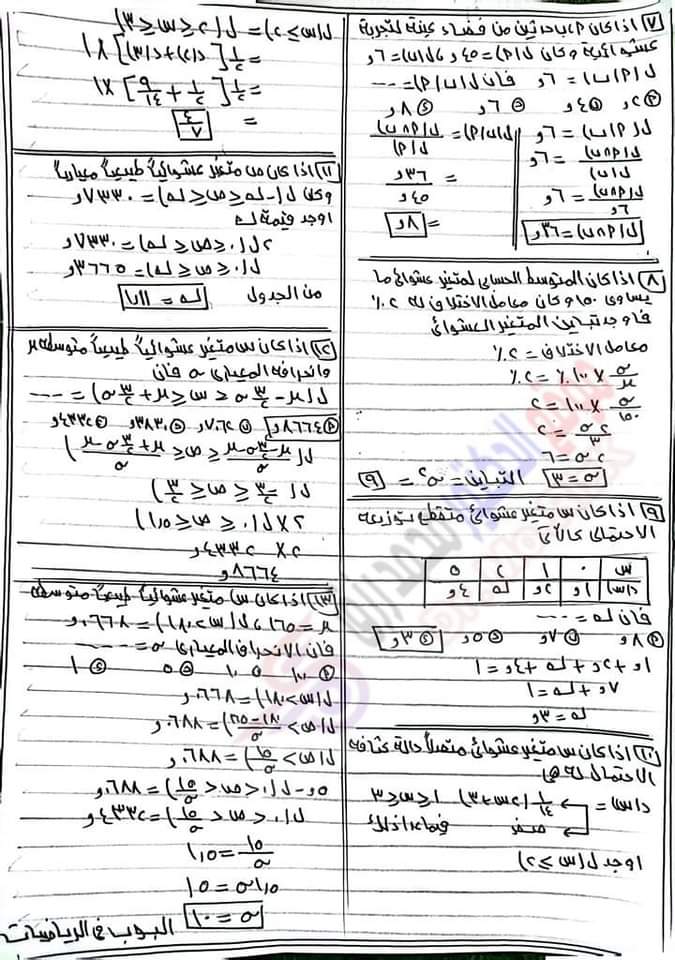 ٧) اذا كان P، ب حدثين من فضاء عينة لتجربة
عشوائية وكان ل(P) = ٤٥و ، ل(ب) = ٦و
ل(P|ب) = ٦و فان ل(ب|P) = ---
٢و ٤و ٦و ٨و
ل(P|ب) = ٦و
ل(P∩ب) / ل(ب) = ٦و
ل(P∩ب) / ٦و = ٦و
ل(P∩ب) = ٣٦و
ل(ب|P) = ل(P∩ب) / ل(P)
= ٣٦و / ٤٥و
= ٨و
٨) اذا كان المتوسط الحسابى لمتغير عشوائى ما
يساوى ١٥٠ وكان معامل الاختلاف له ٢٪
فاوجد تباين المتغير العشوائى
معامل الاختلاف = ٢٪
σ/μ × ١٠٠٪ = ٢٪
σ/١٥٠ × ١٠٠ = ٢
٢σ/٣ = ٢
٢σ = ٦
σ = ٣ التباين = σ² = ٩
٩) اذا كان س متغير عشوائى متقطع توزيعه
الاحتمالى كالآتى
س ٠ ١ ٢ ٥
د(س) ١و ٢و ك ٤و
فان ك = ---
٨و ٧و ٥و ٣و
١و + ٢و + ك + ٤و = ١
٧و + ك = ١
ك = ٣و
١٠) اذا كان س متغير عشوائى متصلاً دالة كثافة
الاحتمال له هى
د(س) = ١/١٤ (٢س + ٣) ١ ≤ س ≤ ٣
صفر فيما عدا ذلك
اوجد ل(س ≥ ٢)
ل(س ≥ ٢) = ل(٢ ≤ س ≤ ٣)
= ١/٢ [د(٢) + د(٣)] × ١
= ١/٢ [١/٢ + ٩/١٤] × ١
= ٤/٧
١١) اذا كان ص متغير عشوائياً طبيعياً معيارياً
وكان ل(-ك ≤ ص ≤ ك) = ٧٣٣٠و
اوجد قيمة ك
٢ل(٠ ≤ ص ≤ ك) = ٧٣٣٠و
ل(٠ ≤ ص ≤ ك) = ٣٦٦٥و
من الجدول ك = ١٫١١
١٢) اذا كان س متغير عشوائياً طبيعياً متوسطه μ
وانحرافه المعيارى σ فان
ل(μ - ٣/٢ σ ≤ س ≤ μ + ٣/٢ σ) = ---
٨٦٦٤و ٧٠٦٢و ٣٨٣٠و ٤٣٣٢و
ل((μ - ٣/٢ σ - μ)/σ ≤ ص ≤ (μ + ٣/٢ σ - μ)/σ)
ل(-٣/٢ ≤ ص ≤ ٣/٢)
٢ × ل(٠ ≤ ص ≤ ١٫٥)
٢ × ٤٣٣٢و
٨٦٦٤و
١٣) اذا كان س متغير عشوائياً طبيعياً متوسطه
μ = ١٦٥ ، ل(س > ١٨٠) = ٠٦٦٨و
فان الانحراف المعيارى σ = ---
١٠٠ ١٠ ٥ ١
ل(س > ١٨٠) = ٠٦٦٨و
= ٠٦٨٨و
ل(ص > ١٥/σ) = ٠٦٨٨و
٥و - ل(٠ < ص < ١٥/σ) = ٠٦٨٨و
ل(٠ < ص < ١٥/σ) = ٤٣٣٢و
١٥/σ = ١٫٥
١٫٥σ = ١٥
σ = ١٠
البوب فى الرياضيات